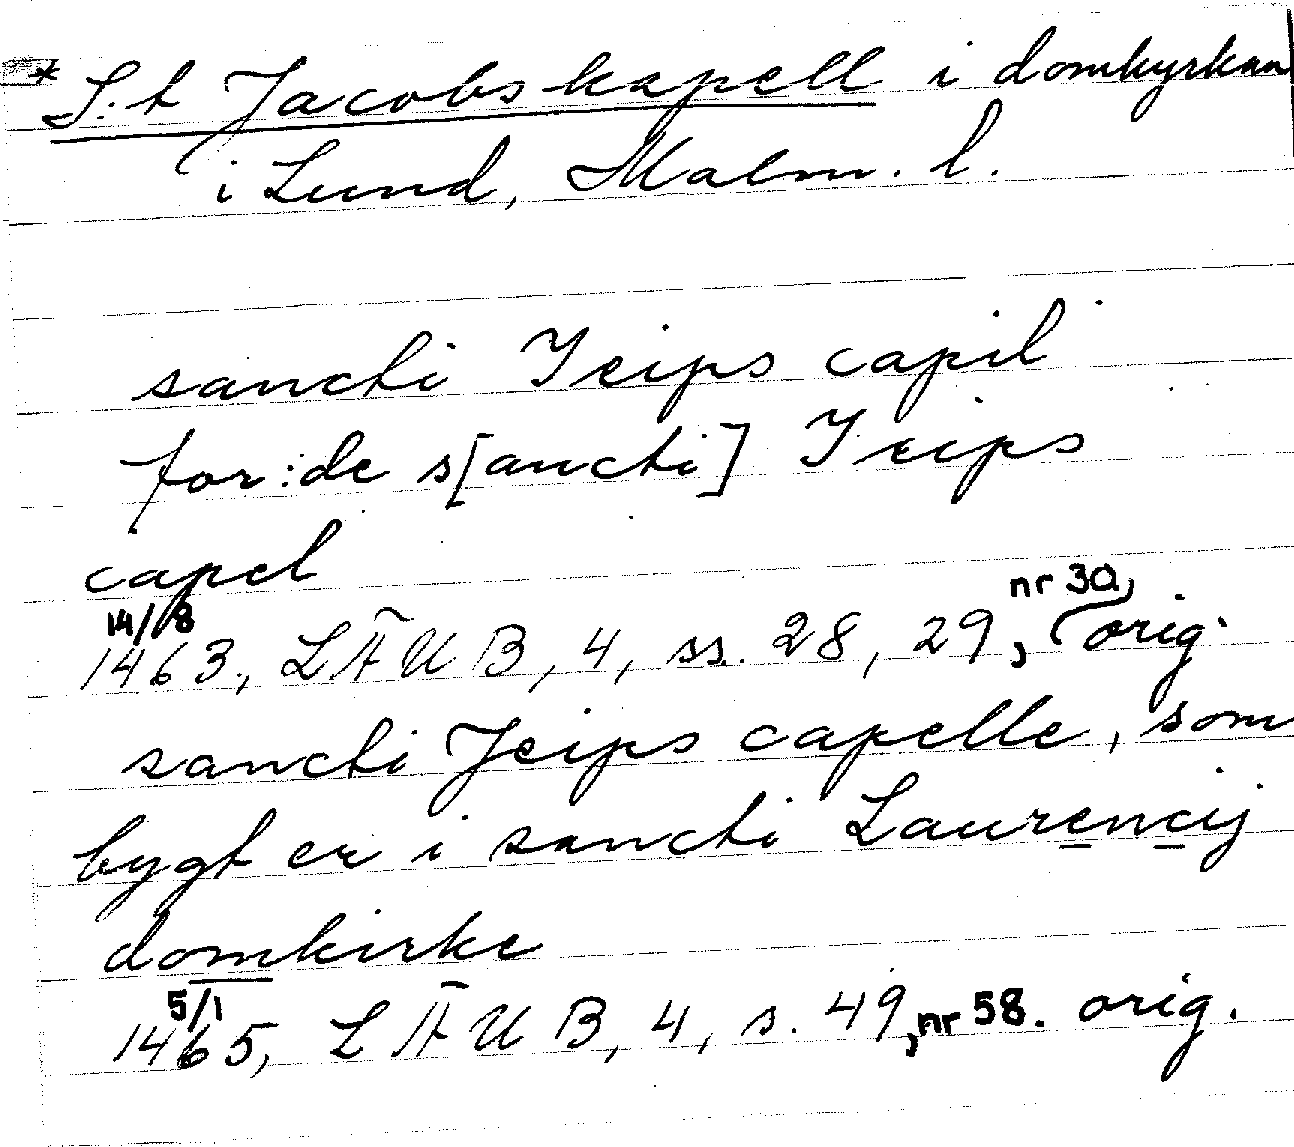 * S:t Jacobs kapell i domkyrkan
i Lund, Malm. l.
sancti Jeips capil
for:de s[ancti] Jeips
capel
14/8 nr 30,
1463, LÄUB, 4, ss. 28, 29, orig.
sancti Jeips capelle, som
bygt er i sancti Laurencij
domkirke
5/1
1465, LÄUB, 4, s. 49, nr 58. orig.